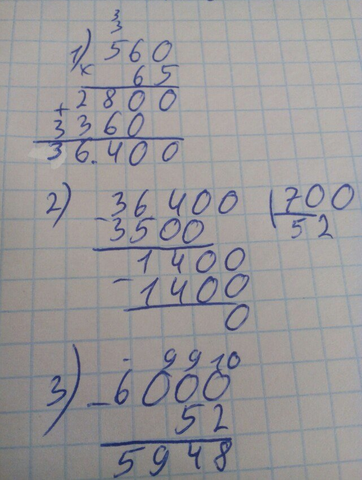 3
3
1) 560
× 65
+ 2800
3360
36.400
2) -36400 | 700
3500 52
1400
- 1400
0
. 9 9 10
3) - 6000
52
5948